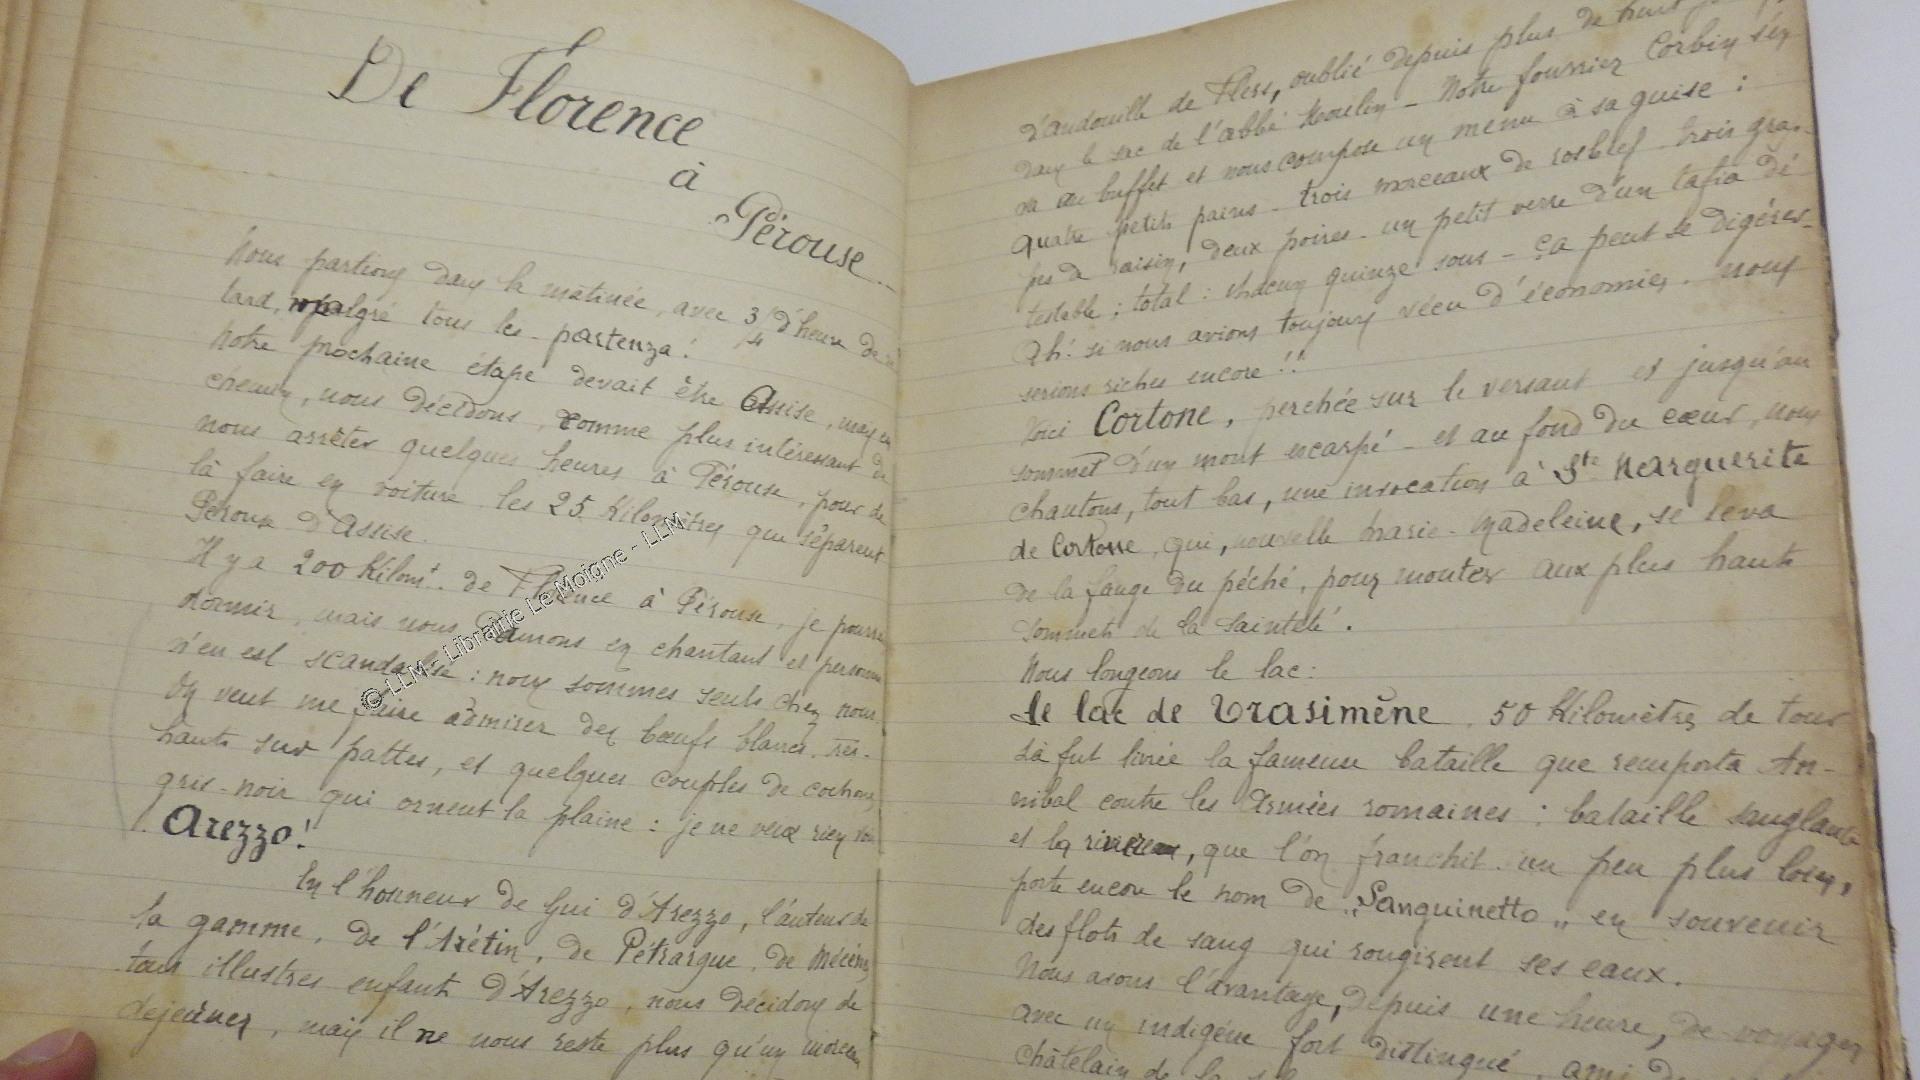 De Florence
à
Pérouse
Nous partions dans la matinée, avec 3/4 d'heure de re
tard, malgré tous les partenza!
Notre prochaine étape devait être Assise, mais en
chemin, nous décidons, comme plus intéressant de
nous arrêter quelques heures à Pérouse, pour de
là faire en voiture les 25 Kilomètres qui séparent
Pérouse d'Assise.
Il y a 200 Kilomt. de Florence à Pérouse, je pourrai
dormir, mais nous aimons en chantant et personne
n'en est scandalisé : nous sommes seuls chez nous.
On veut me faire admirer des bœufs blancs, très-
hauts sur pattes, et quelques couples de cochons
gris-noir qui ornent la plaine : je ne veux rien voir
Arezzo!
En l'honneur de Gui d'Arezzo, l'auteur de
la gamme, de l'Arétin, de Pétrarque, de Mécène,
tous illustres enfants d'Arezzo, nous décidons de
dejeuner, mais il ne nous reste plus qu'un morceau
d'andouille de Flers, oublié depuis plus de huit jours
dans le sac de l'abbé Moulin - Notre fourrier Corbin s'en
va au buffet et nous compose un menu à sa guise :
quatre petits pains - trois morceaux de rosbief - trois grap-
pes de raisin, deux poires - un petit verre d'un tafia dé
testable ; total : chacun quinze sous - ça peut se digérer -
Ah! si nous avions toujours vécu d'économies, nous
serions riches encore!!
Voici Cortone, perchée sur le versant et jusqu'au
sommet d'un mont escarpé - et au fond du cœur, nous
chantons, tout bas, une invocation à Ste Marguerite
de Cortone, qui, nouvelle Marie-Madeleine, se leva
de la fange du péché, pour monter aux plus hauts
sommets de la sainteté.
Nous longeons le lac :
Le lac de Trasimène. 50 Kilomètres de tour
Là fut livrée la fameuse bataille que remporta An-
nibal contre les Armées romaines : bataille sanglante
et la rivière, que l'on franchit un peu plus loin,
porte encore le nom de "Sanguinetto" en souvenir
des flots de sang qui rougirent ses eaux.
Nous avons l'avantage, depuis une heure, de voyager
avec un indigène fort distingué, ami de
châtelain de la
© LLM - Librairie Le Moigne - LLM